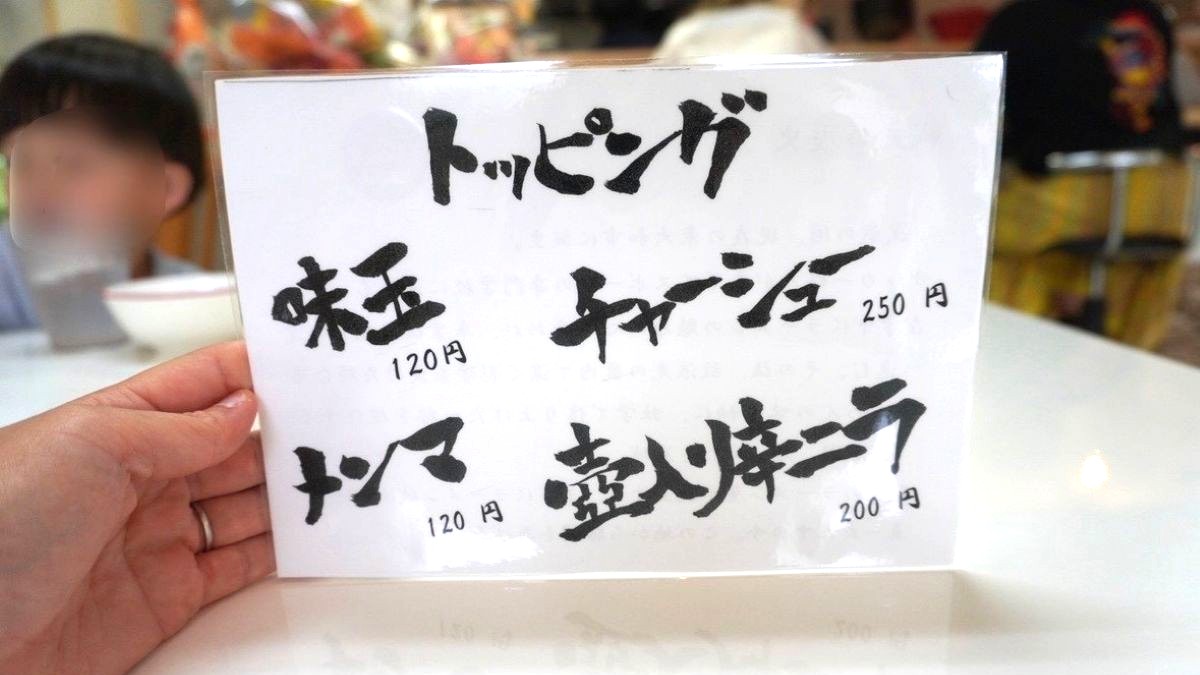 トッピング
味玉
120円
チャーシュー
250 円
メンマ
120 円
壺入り辛ニラ
200 円